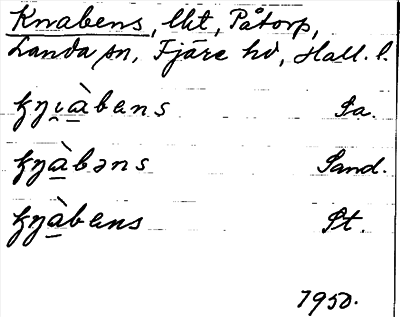 Knabens, lht, Påtorp,
Landa sn, Fjäre hd, Hall. l.
kŋı̯àbens Pa.
kŋàbəns Sand.
kŋàbens St.
1950.